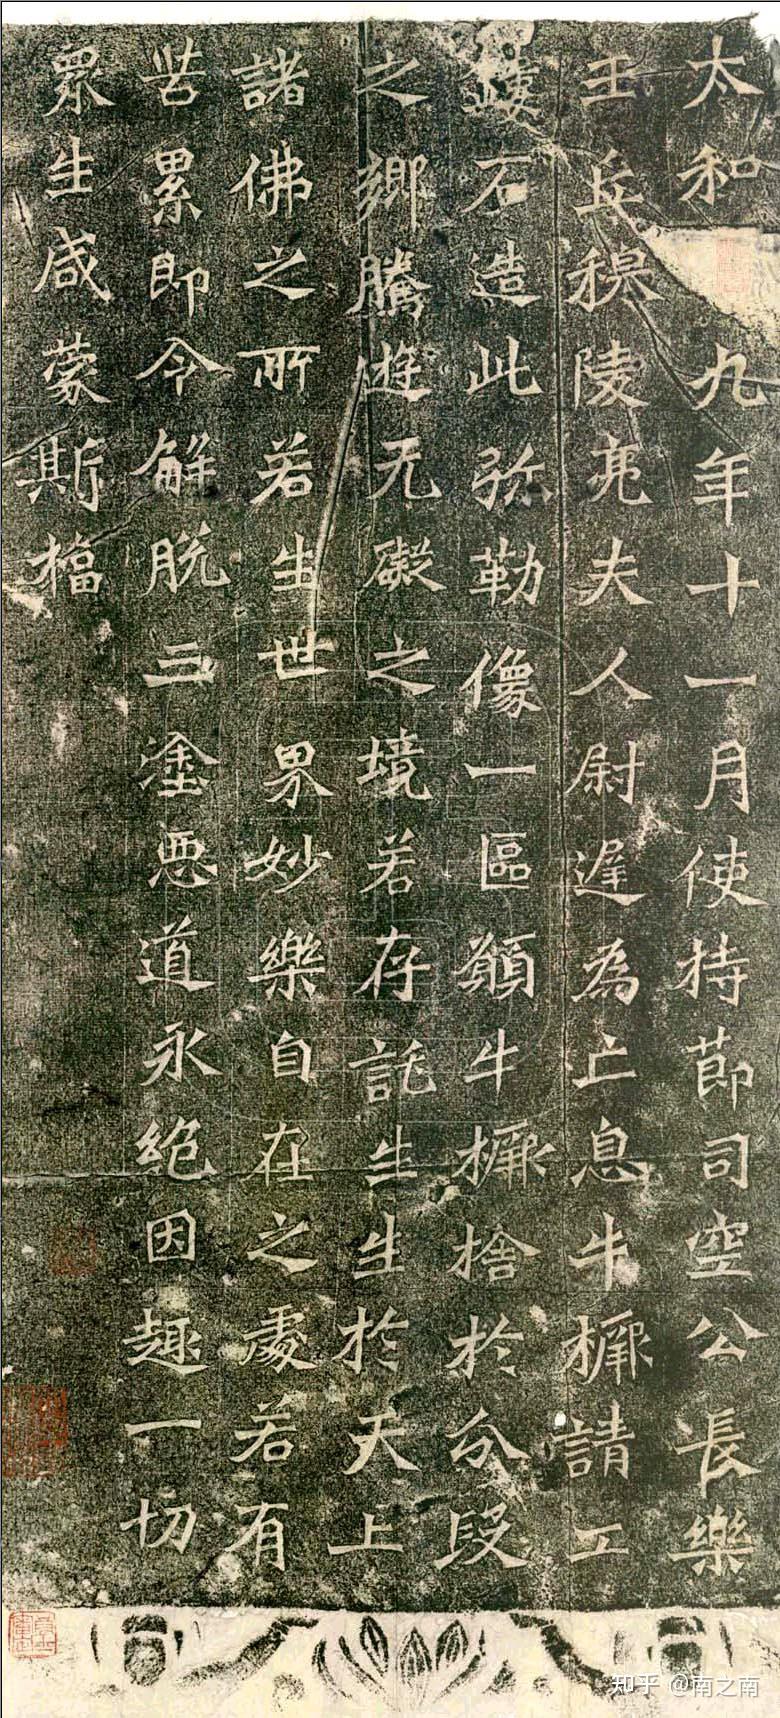 太和九年十一月使持節司空公長樂
王丘穆陵亮夫人尉遲為亡息牛橛請工
鏤石造此弥勒像一區願牛橛捨於分段
之鄉騰遊无礙之境若存託生生於天上
諸佛之所若生世界妙樂自在之處若有
苦累即令解脱三塗惡道永絶因趣一切
眾生咸蒙斯福
知乎 @南之南